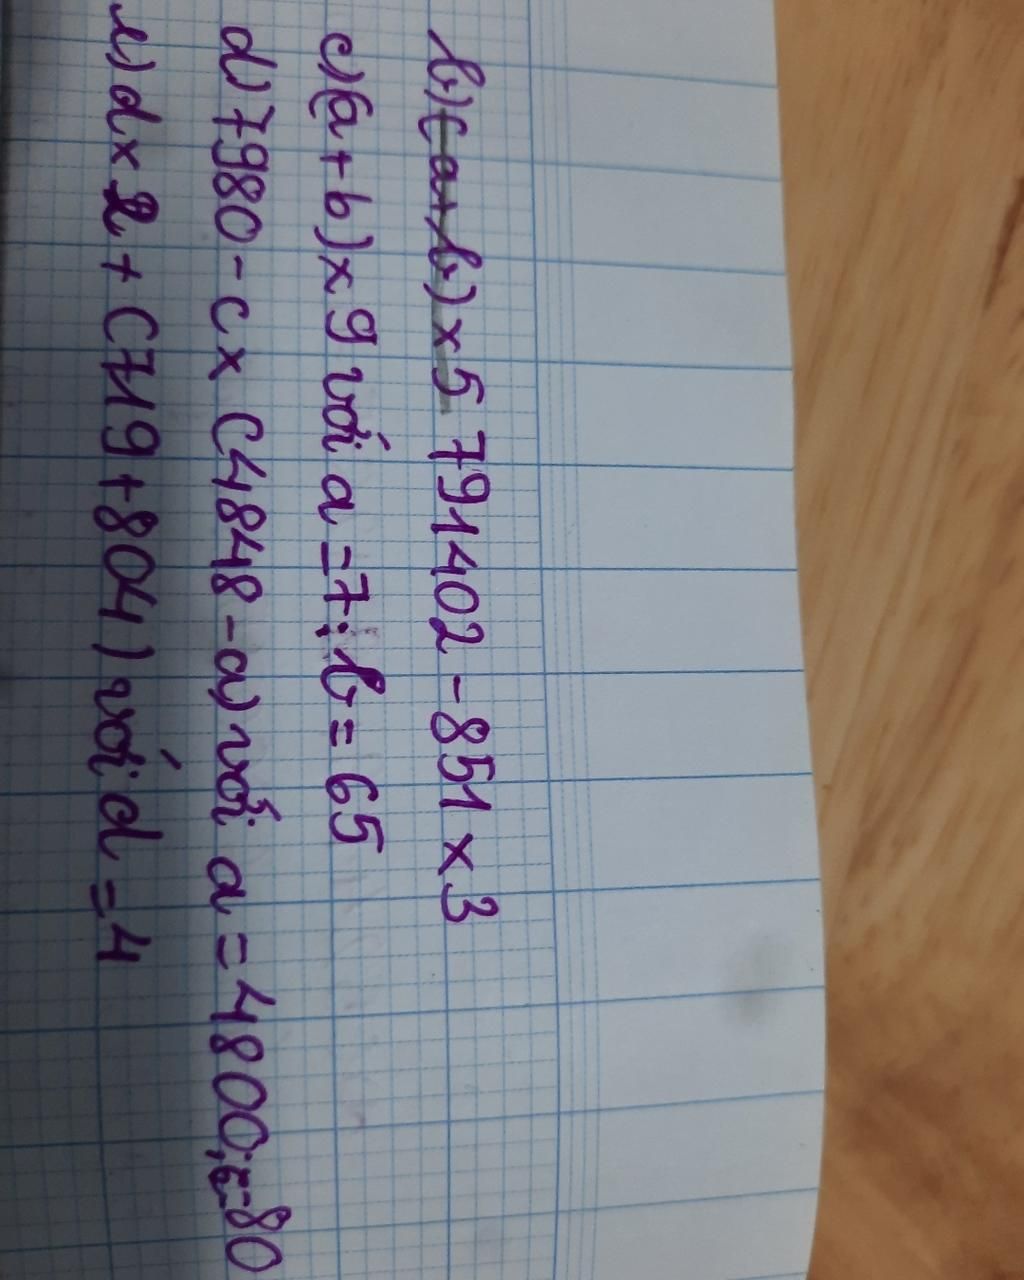 b) (a+b) x 5 791402 - 851 x 3
c) (a + b) x 9 với a = 7; b = 65
d) 7980 - c x (4848 - a) với a = 4800; c = 80
e) d x 2 + (719 + 804) với d = 4